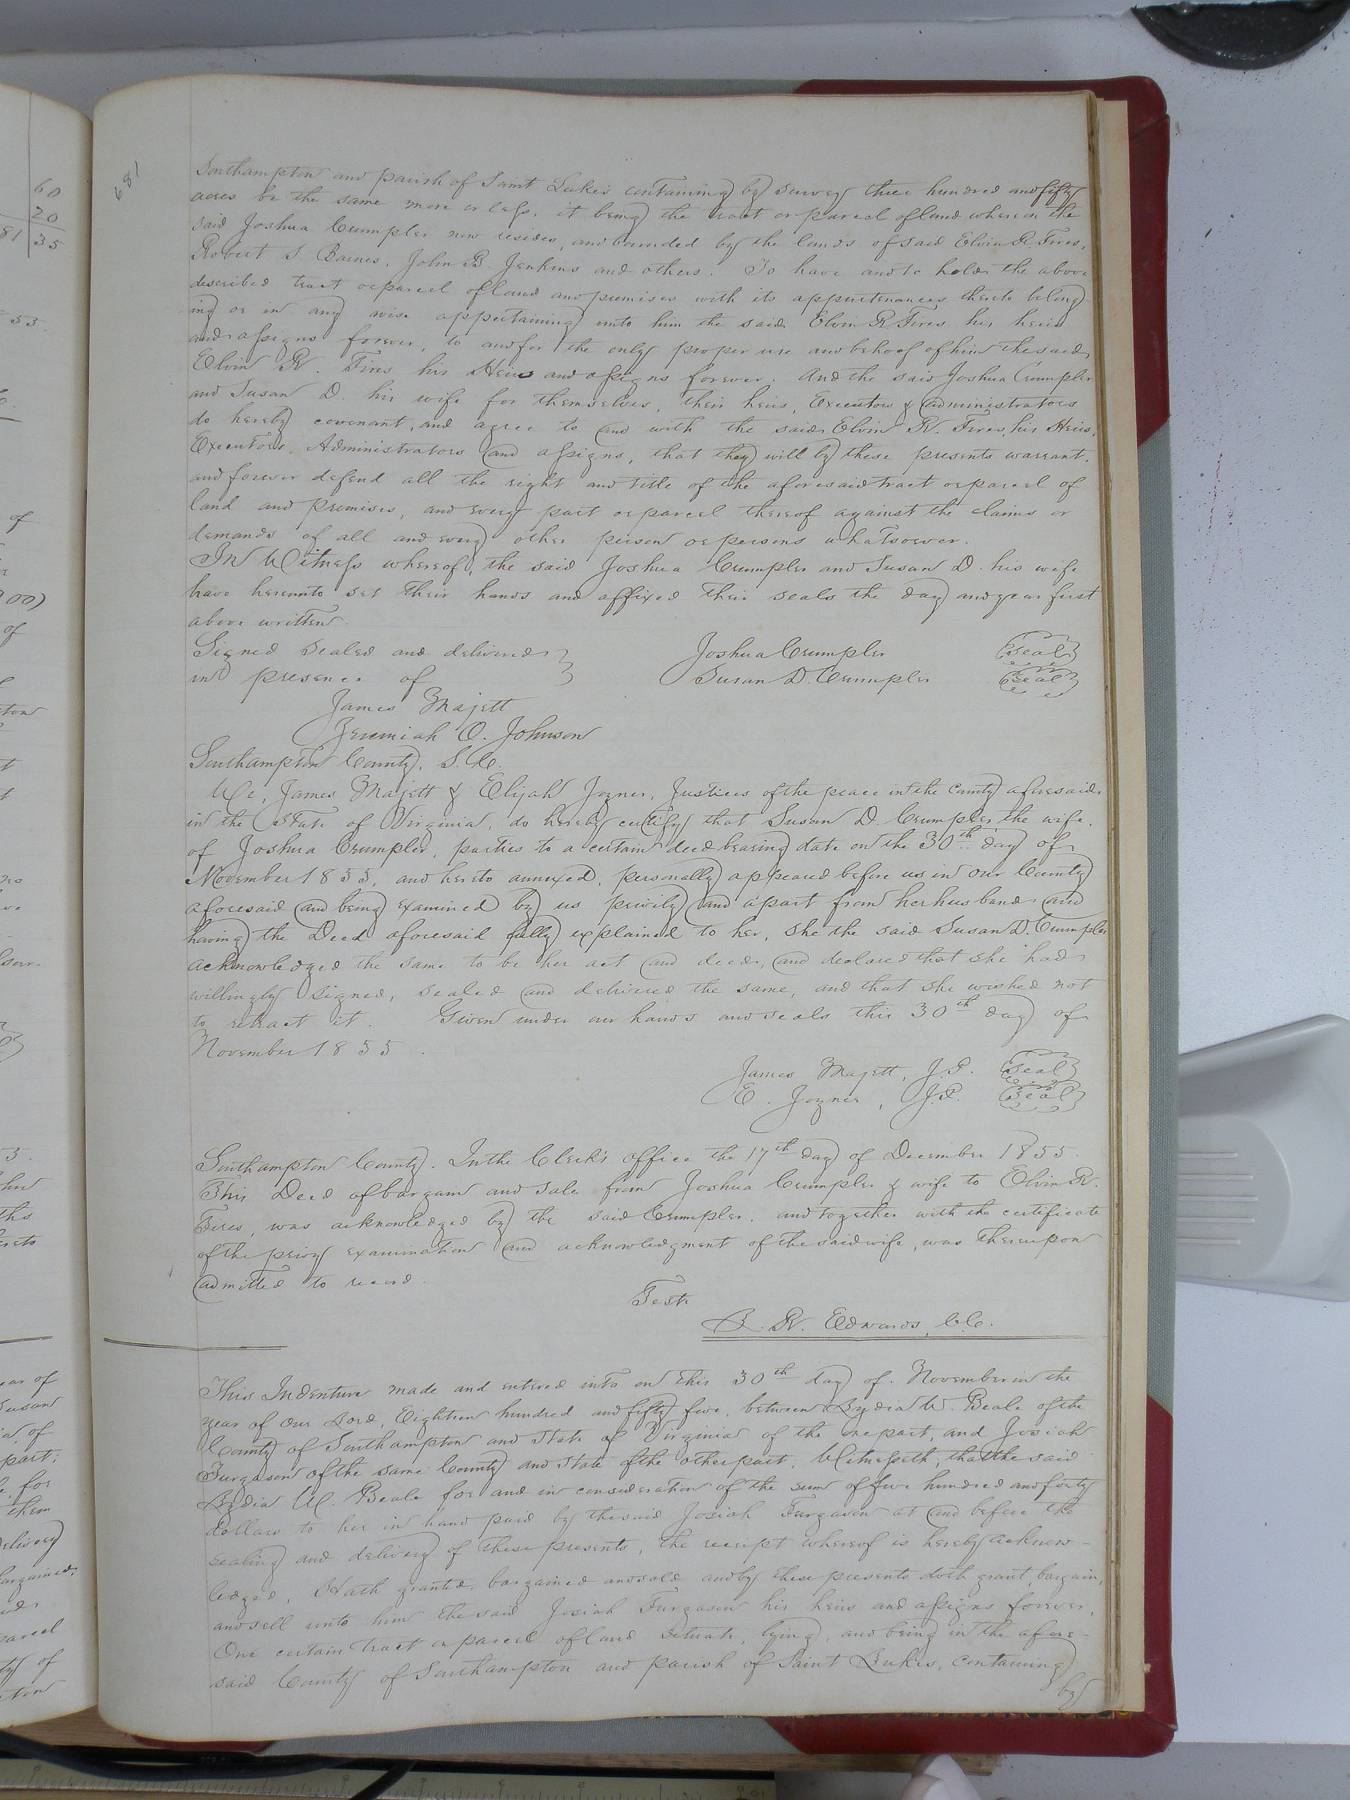 681
Southampton and parish of Saint Lukes containing by survey three hundred and fifty
acres be the same more or less, it being the tract or parcel of land whereon the
said Joshua Crumpler now resides, and bounded by the lands of said Elvin R. Fires,
Robert S. Barnes, John B Jenkins and others. To have and to hold the above
described tract or parcel of land and premises with its appurtenances thereto belong
ing or in any wise appertaining unto him the said Elvin R Fires his heirs
and assigns forever, to and for the only proper use and behoof of him the said
Elvin R. Fires his Heirs and assigns forever. And the said Joshua Crumpler
and Susan D. his wife for themselves, their heirs, Executors & administrators
do hereby covenant, and agree to and with the said Elvin R. Fires, his Heirs,
Executors, Administrators and assigns, that they will by these presents warrant,
and forever defend all the right and title of the aforesaid tract or parcel of
land and premises, and every part or parcel thereof against the claims or
demands of all and every other person or persons whatsoever.
In Witness whereof, the said Joshua Crumpler and Susan D. his wife
have hereunto set their hands and affixed their seals the day and year first
above written.
Signed sealed and delivered } Joshua Crumpler {Seal}
in presence of } Susan D. Crumpler {Seal}
James Majett
Jeremiah O. Johnson
Southampton County, S.C.
We, James Majett & Elijah Joyner, Justices of the peace in the County aforesaid,
in the State of Virginia, do hereby certify that Susan D. Crumpler the wife,
of Joshua Crumpler, parties to a certain deed bearing date on the 30th day of
November 1855, and hereto annexed, personally appeared before us in our County
aforesaid and being examined by us privily and apart from her husband and
having the Deed aforesaid fully explained to her, she the said Susan D. Crumpler
acknowledged the same to be her act and deed, and declared that she had
willingly signed, sealed and delivered the same, and that she wished not
to retract it. Given under our hands and seals this 30th day of
November 1855.
James Majett, J.P. {Seal}
E. Joyner, J.P. {Seal}
Southampton County. In the Clerk's office the 17th day of December 1855.
This Deed of bargain and sale from Joshua Crumpler & wife to Elvin R.
Fires, was acknowledged by the said Crumpler, and together with the certificate
of the privy examination and acknowledgment of the said wife, was thereupon
admitted to record.
Teste
L. R. Edwards, C.C.
This Indenture made and entered into on this 30th day of November in the
year of our Lord, Eighteen hundred and fifty five, between Lydia W. Beale of the
County of Southampton and State of Virginia of the one part, and Josiah
Furgason of the same County and State of the other part, Witnesseth, that the said
Lydia W. Beale for and in consideration of the sum of five hundred and forty
dollars to her in hand paid by the said Josiah Furgason at and before the
sealing and delivery of these presents, the receipt whereof is hereby acknow-
ledged, Hath granted, bargained and sold and by these presents doth grant, bargain,
and sell unto him the said Josiah Furgason his heirs and assigns forever,
One certain tract or parcel of land situate, lying, and being in the afore-
said County of Southampton and parish of Saint Lukes, containing
by